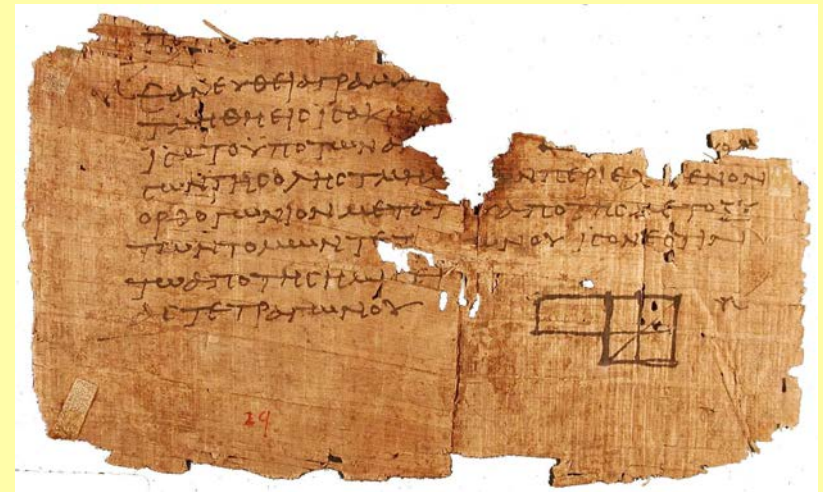 ΕΑΝ ΕΥΘΕΙΑ ΓΡΑΜΜ
ΤΜΗΘΗ ΕΙC ΙCΑ Κ
ΙCΑ ΤΟ ΥΠΟ ΤΩΝ Α
CΩΝ ΤΗC ΟΛΗC ΤΜΗΜ ΩΝ ΠΕΡΙΕΧ ΜΕΝΟΝ
ΟΡΘΟΓΩΝΙΟΝ ΜΕΤΑ ΤΟΥ ΑΠΟ ΤΗC ΜΕΤΟΞΥ
ΤΩΝ ΤΟΜΩΝ ΤΕΤ ΩΝΟΥ ΙCΟΝ ΕCΤΙΝ
ΤΩ ΑΠΟ ΤΗC ΗΜΙC
ΑC ΤΕΤΡΑΓΩΝΟΥ
29